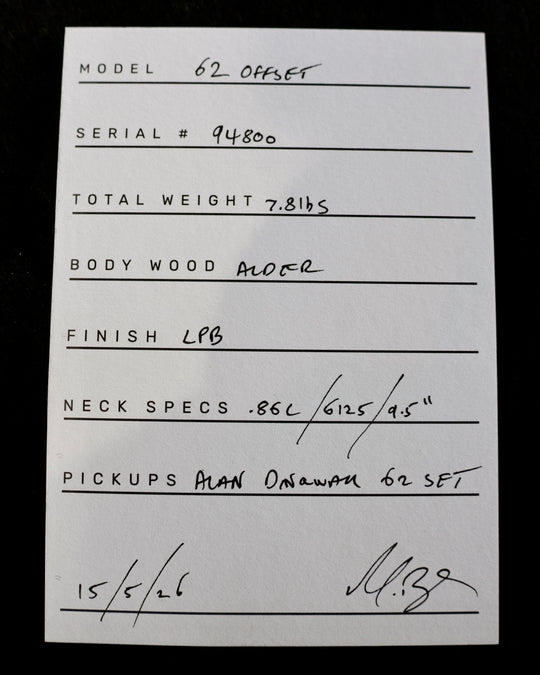 MODEL 62 OFFSET
SERIAL # 94800
TOTAL WEIGHT 7.8lbS
BODY WOOD ALDER
FINISH LPB
NECK SPECS .86C/6125/9.5"
PICKUPS ALAN 62 SET
15/5/26